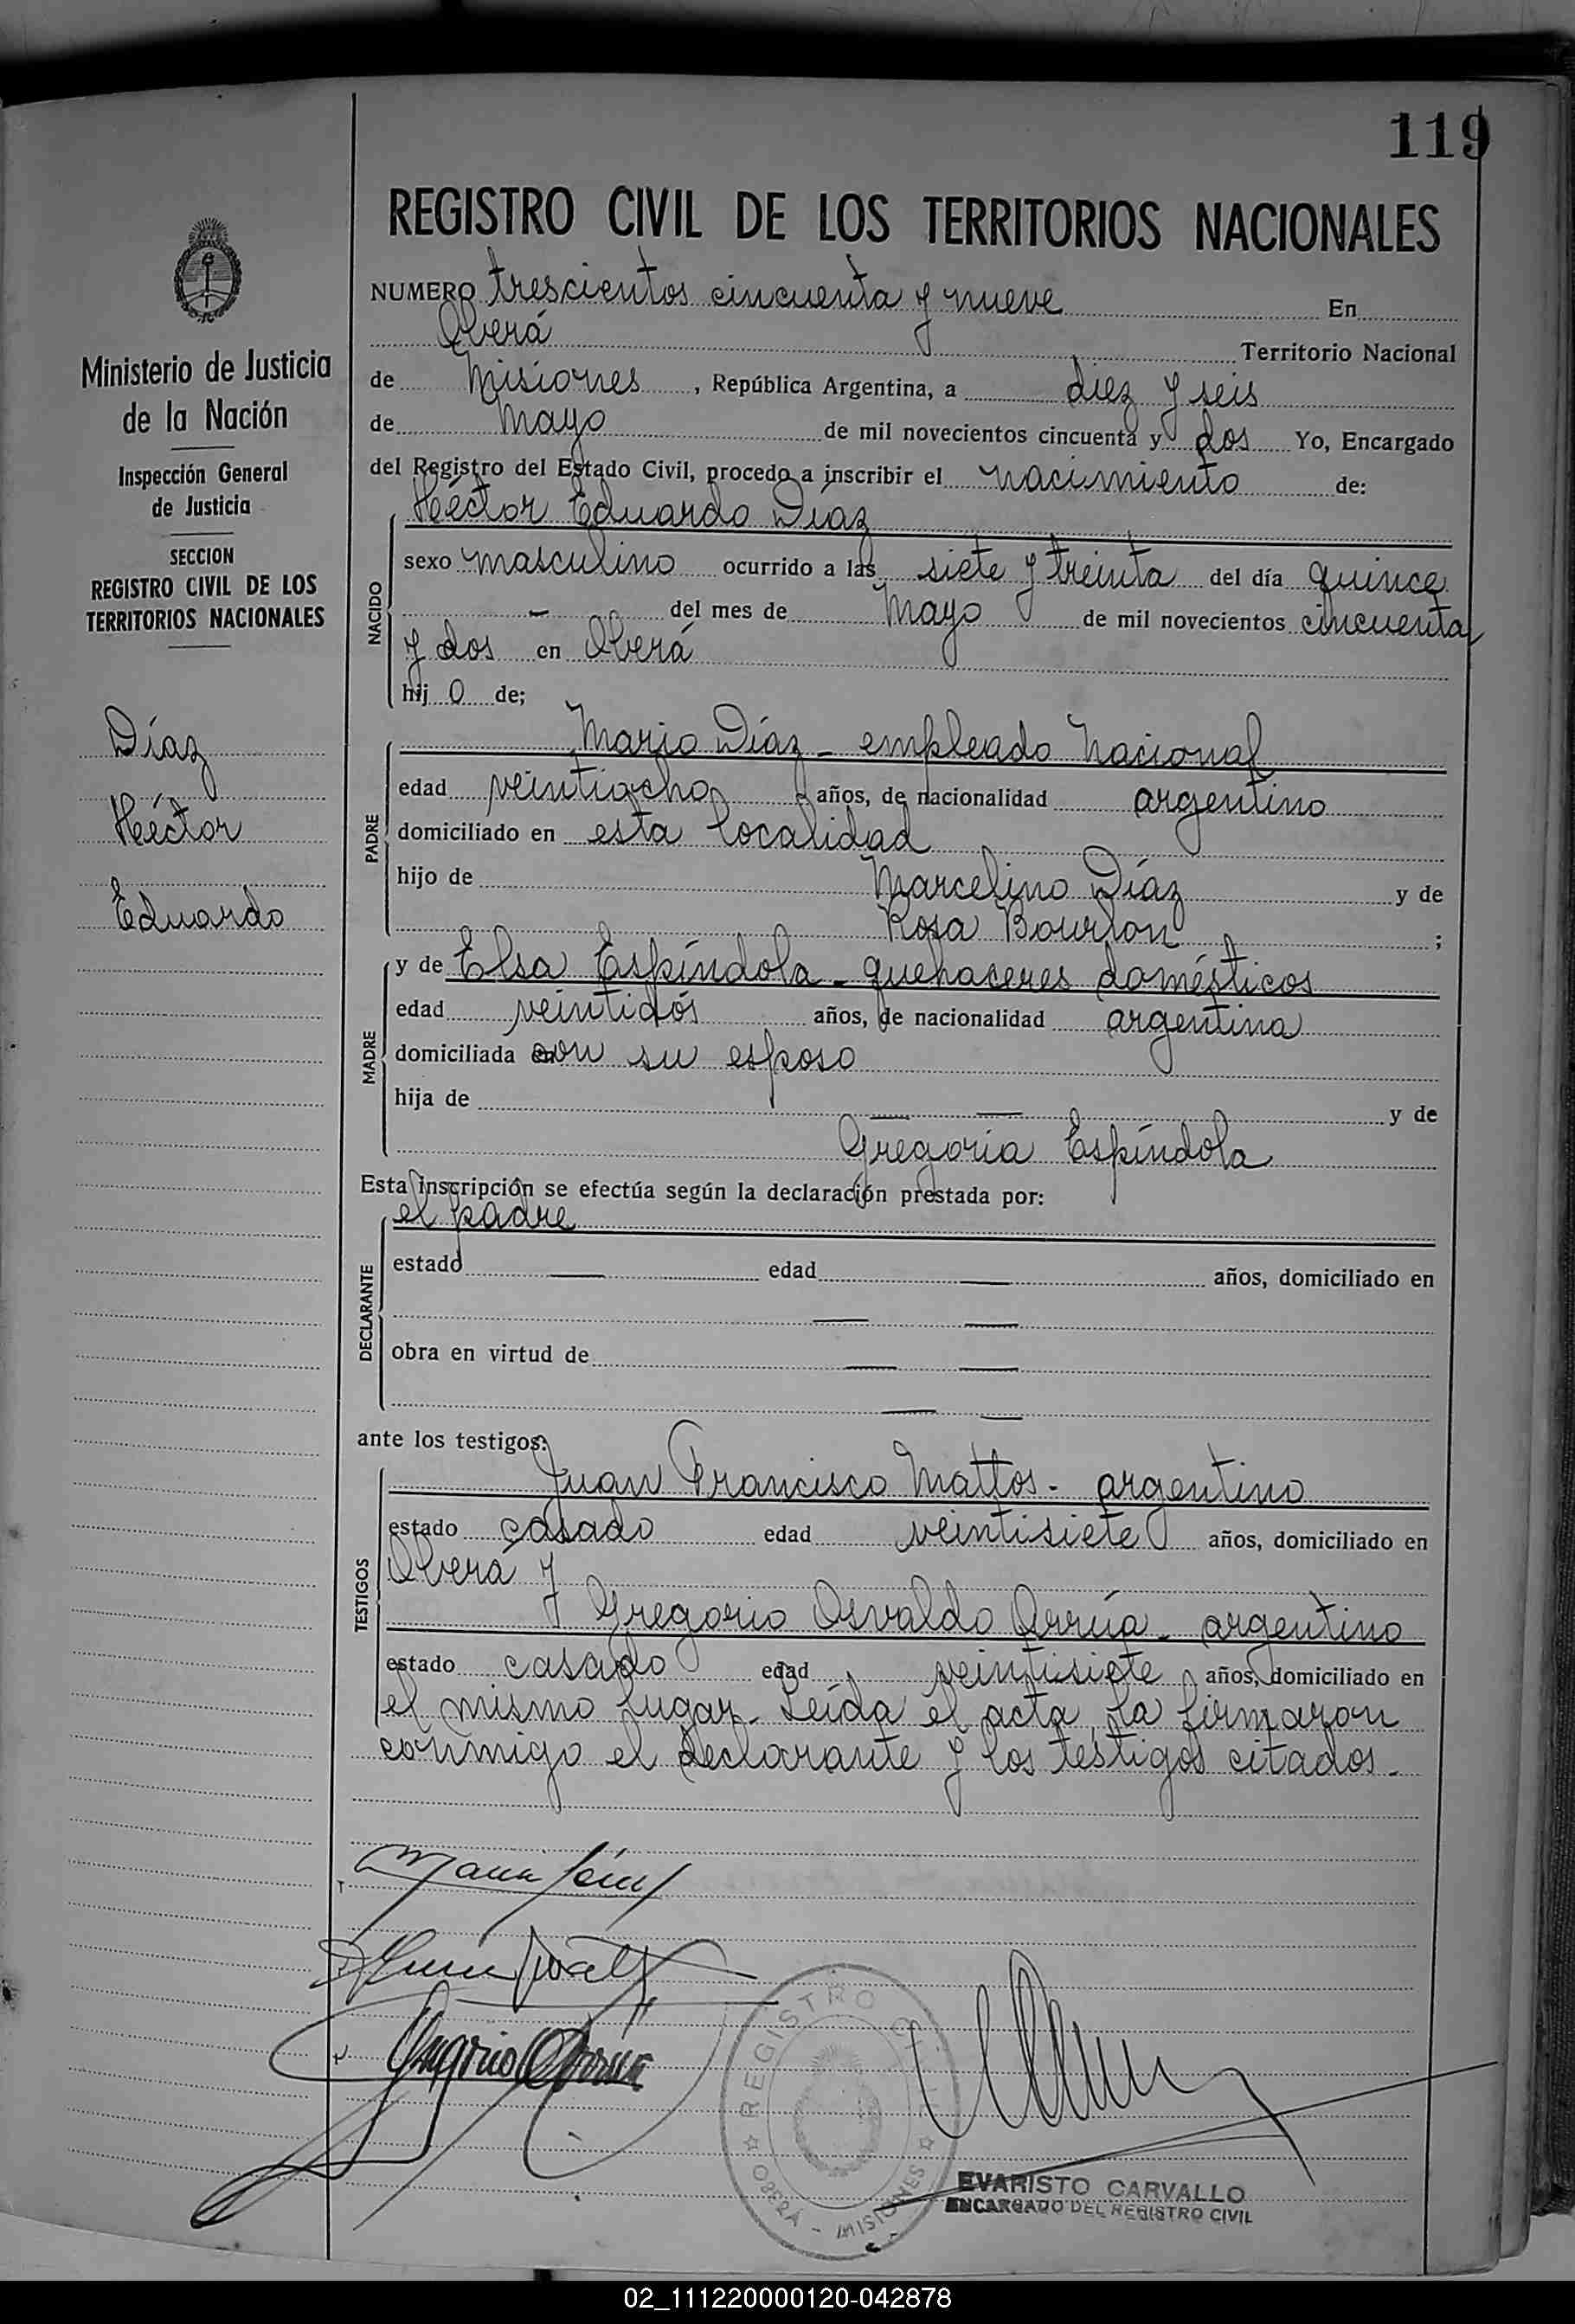 119
REGISTRO CIVIL DE LOS TERRITORIOS NACIONALES
NUMERO trescientos cincuenta y nueve En
Oberá Territorio Nacional
de Misiones, República Argentina, a diez y seis
de Mayo de mil novecientos cincuenta y dos Yo, Encargado
del Registro del Estado Civil, procedo a inscribir el nacimiento de:
Héctor Eduardo Díaz
NACIDO
sexo masculino ocurrido a las siete y treinta del día quince
— del mes de Mayo de mil novecientos cincuenta
y dos en Oberá
hij o de;
PADRE
Mario Díaz - empleado Nacional
edad veintiocho años, de nacionalidad argentino
domiciliado en esta localidad
hijo de Marcelino Díaz y de
Rosa Bourlon ;
MADRE
y de Elsa Espíndola - quehaceres domésticos
edad veintidós años, de nacionalidad argentina
domiciliada con su esposo
hija de — — y de
Gregoria Espíndola
Esta inscripción se efectúa según la declaración prestada por:
el padre
DECLARANTE
estado — edad — años, domiciliado en
— —
obra en virtud de — —
— —
ante los testigos:
TESTIGOS
Juan Francisco Mattos - argentino
estado casado edad veintisiete años, domiciliado en
Oberá y
Gregorio Osvaldo Arrúa - argentino
estado casado edad veintisiete años, domiciliado en
el mismo lugar - Leída el acta, la firmaron
conmigo el declarante y los testigos citados -
Ministerio de Justicia
de la Nación
Inspección General
de Justicia
SECCION
REGISTRO CIVIL DE LOS
TERRITORIOS NACIONALES
Díaz
Héctor
Eduardo
REGISTRO
OBERA - MISIONES
EVARISTO CARVALLO
ENCARGADO DEL REGISTRO CIVIL
02_111220000120-042878